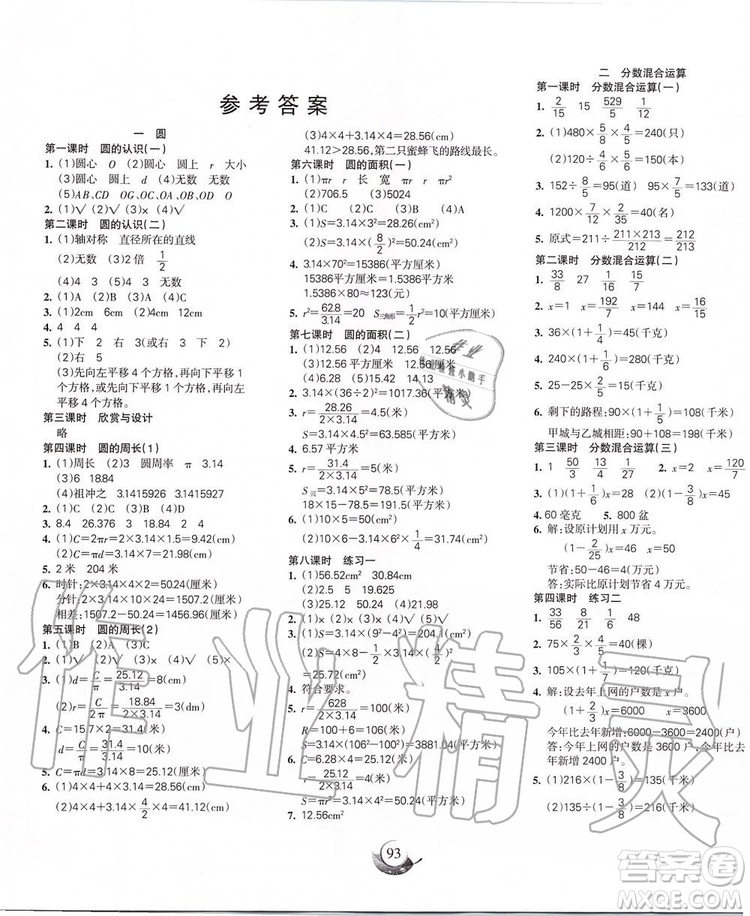 参考答案
一 圆
第一课时 圆的认识(一)
1. (1)圆心 O (2)圆心 圆上 r 大小
(3)圆心 圆上 d (4)无数 无数
(5)AB、CD OG、OC、OA、OB、OD O
2. (1)√ (2)√ (3)× (4)√
第二课时 圆的认识(二)
1. (1)轴对称 直径所在的直线
(2)无数 (3)2倍 1/2
(4)3 4 2 无数
2. (1)2cm 6cm (2)3cm 12cm
4. 4 4 4
5. (1)下 2 右 3(或右 3 下 2)
(2)右 5
(3)先向左平移4个方格,再向下平移4个方格。先向下平移4个方格,再向左平移4个方格。
第三课时 欣赏与设计
略
第四课时 圆的周长(1)
1. (1)周长 (2)3 圆周率 π 3.14
(3)6
(4)祖冲之 3.1415926 3.1415927
2. (1)C (2)B (3)C (4)D
3. 8.4 26.376 18.84
4. (1)C=2πr=2×3.14×1.5=9.42(cm)
(2)C=πd=3.14×7=21.98(cm)
5. 2米 204米
6. 时针:2×3.14×4×2=50.24(厘米)
分针:2×3.14×10×24=1507.2(厘米)
相差:1507.2-50.24=1456.96(厘米)
第五课时 圆的周长(2)
1. (1)B (2)A (3)D (4)B
2. (1)√ (2)√ (3)√ (4)× (5)×
3. (1)d=C/π=25.12/3.14=8(cm)
(2)d=C/π=18.84/3.14=6(cm)
4. C=15.7×2=31.4(米)
d=C/π=31.4/3.14=10(米)
5. C=πd=3.14×8=25.12(厘米)
6. (1)4×4+4×3.14×2/2=28.56(cm)
(2)4×4+4×3.14×4/2×4=41.12(cm)
(3)4×4+3.14×4=28.56(cm)
41.12>28.56,第二只蜜蜂飞的路线最长。
第六课时 圆的面积(一)
1. (1)πr r 长 宽 πr r πr²
(2)706.5 (3)5024
2. (1)C (2)B (3)C (4)C
3. (1)S=3.14×3²=28.26(cm²)
(2)S=3.14×(8/2)²=50.24(cm²)
4. 3.14×70²=15386(平方厘米)
15386平方厘米=1.5386平方米
1.5386×80≈123(元)
5. r²=62.8/3.14=20 S三角形=1/2r²=10(cm²)
第七课时 圆的面积(二)
1. (1)12.56 (2)4 12.56 12.56
(3)12平方厘米 37.68平方厘米
2. 3.14×(36/2)²=1017.36(cm²)
3. r=28.26/2×3.14=4.5(米)
S=3.14×4.5²=63.585(平方米)
4. 6.57平方米
5. r=31.4/2×3.14=5(米)
S圆=3.14×5²=78.5(平方米)
18×15-78.5=191.5(平方米)
6. (1)10×6-3.14×3²=31.74(cm²)
(2)10×6-3.14×3²×1/2=45.87(cm²)
第八课时 练习一
1. (1)56.52cm² 30.84cm
(2)2.5 5 19.625
2. (1)√ (2)× (3)√ (4)√
3. (1)S=3.14×(9²-4²)=204.1(cm²)
(2)S=(6+4)×8×1/2-3.14×(8/2)²×1/2=25.72(cm²)
4. 符合要求。
5. r=628/2×3.14=100(米)
R=100+6=106(米)
S=3.14×(106²-100²)=3881.04(平方米)
6. C=6.28×4=25.12(米)
r=25.12/2×3.14=4(米)
S=3.14×4²=50.24(平方米)
7. 12.56cm²
二 分数混合运算
第一课时 分数混合运算(一)
1. 2/15 15 529/5 15
2. (1)480×5/8×1/2=150(本)
(2)120÷6/8=160(本)
3. 152÷8/5=95(道) 95×3/5=57(道)
4. 1200×7/12×2/35=40(名)
5. 原式=211÷211×213/212=212/213
第二课时 分数混合运算(二)
1. 33/8 27 33/7 11
2. x=1 x=192/7 x=144 x=16/15
3. 36×(1+1/4)=45(千克)
4. 240×(1-1/6)=200(千克)
5. 25-25×1/5=20(千克)
6. 剩下的路程:90×(1+1/5)=108(千米)
甲城与乙城相距:90+108=198(千米)
第三课时 分数混合运算(三)
1. 1 50/3 13/4 1/27 2. x=2 x=120/7
3. (1)(1+1/6)x=35 (2)(1-1/8)x=35
4. 60毫克 5. 800盆
6. 解:设原计划用x万元。
(1-2/25)x=46 x=50
节省:50-46=4(万元)
答:实际比原计划节省4万元。
第四课时 练习二
1. 33/56 8/21 1/33 46
2. 75×3/5×8/9=40(棵)
3. 105×(1+1/7)=120(千米)
4. 解:设去年上网的户数是x户。
(1+2/3)x=6000 x=3600
今年比去年新增:6000-3600=2400(户)
答:今年上网的户数是3600户,今年比去年新增2400户。
5. (1)216×(1-3/8)=135(千米)
(2)135÷(1-3/8)=216(千米)
93
作业精灵
答案圈
MXQE.COM